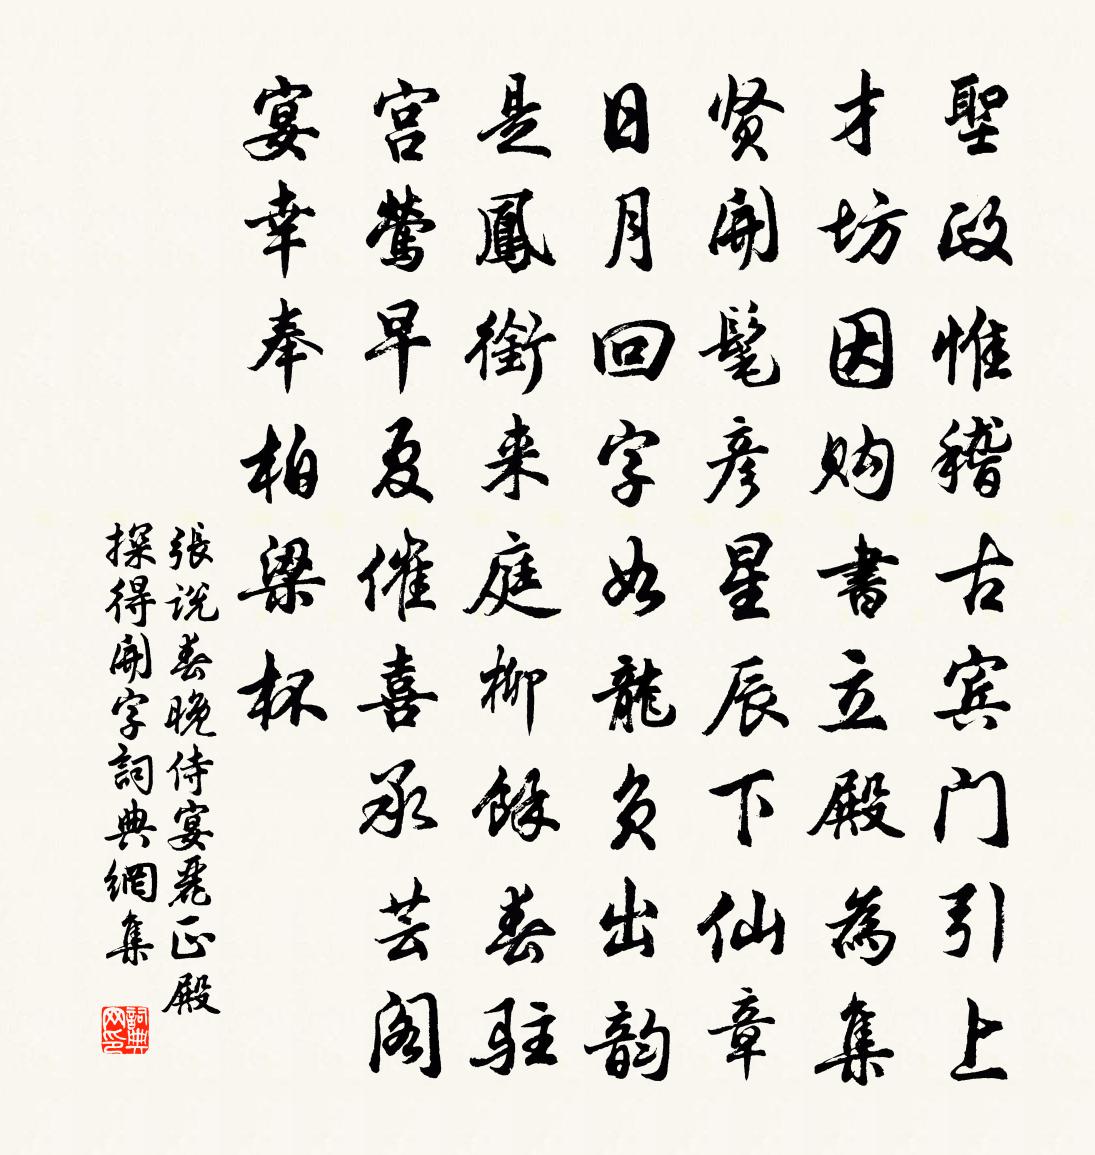 聖政惟稽古宾门引上
才坊因购書立殿為集
贤開髦彦星辰下仙章
日月回字如龍负出韵
是鳳銜来庭柳餘春駐
宫鶯早夏催喜承芸阁
宴幸奉柏梁杯
張説春晚侍宴麗正殿
探得開字詞典網集
詞典网印